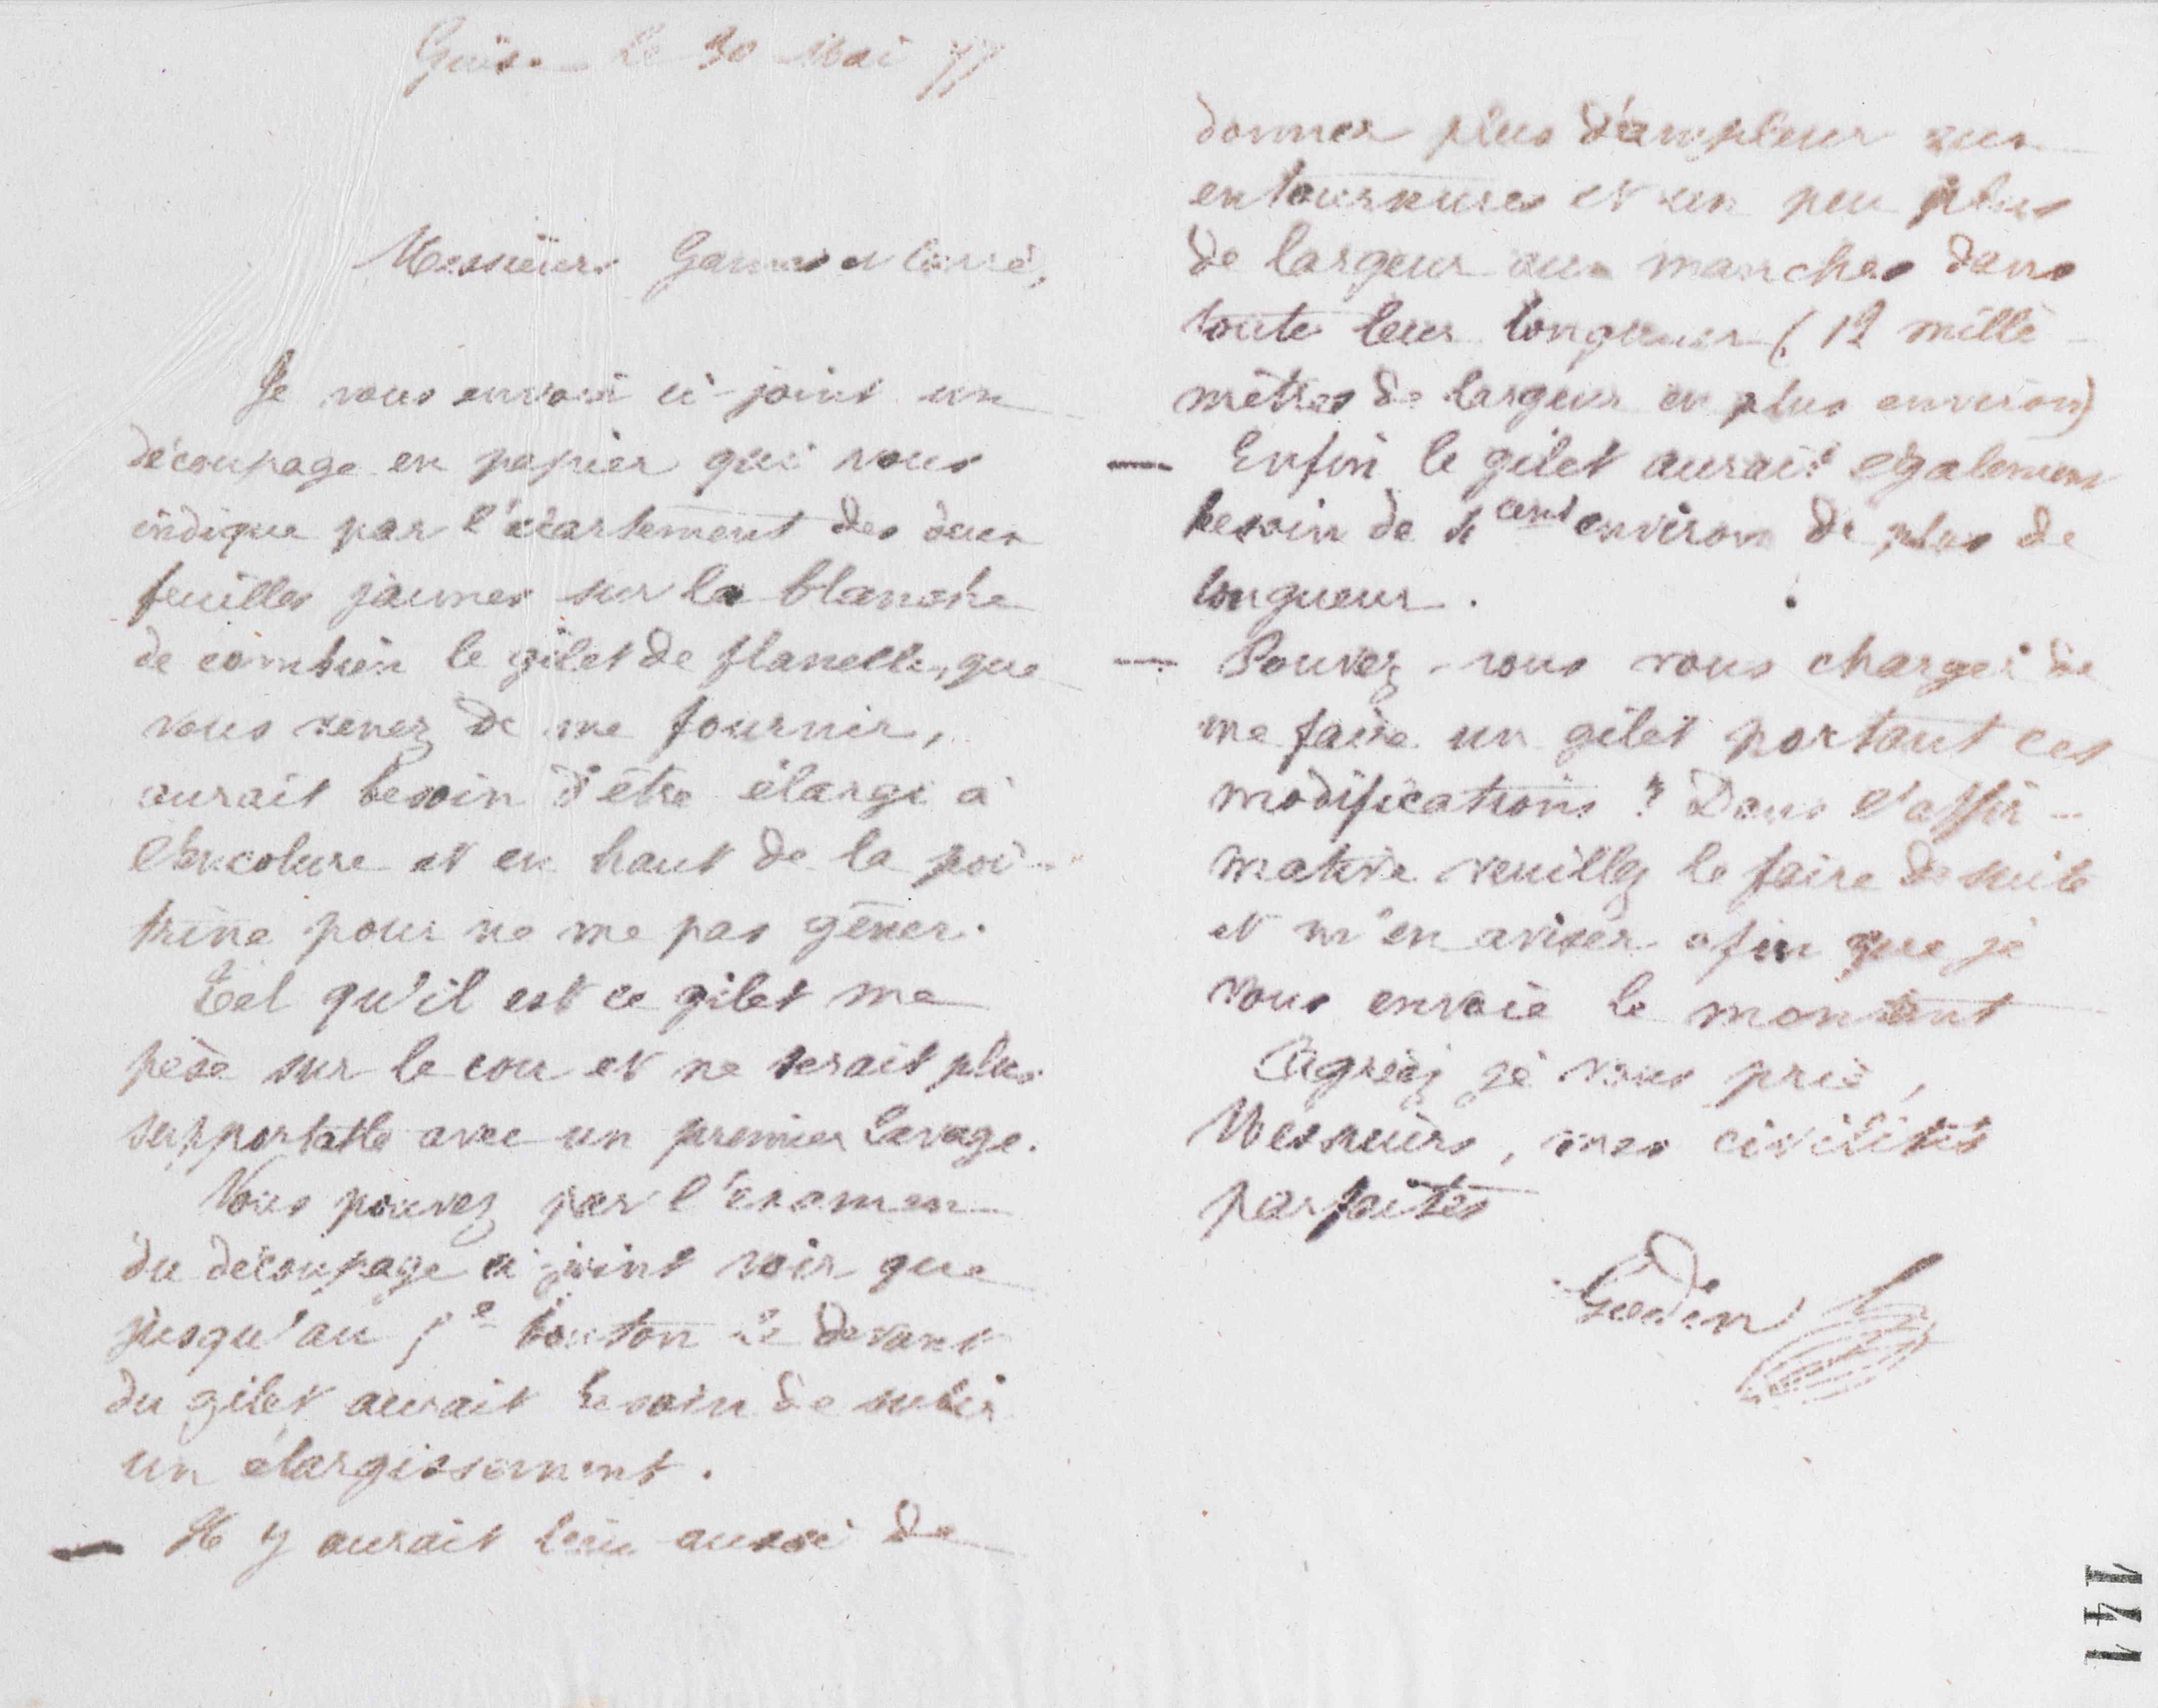 Guise le 30 Mai 77
Messieurs
Je vous envoie ci-joint un
découpage en papier qui vous
indique par l'écartement des deux
feuilles jaunes sur la blanche
de combien le gilet de flanelle, que
vous venez de me fournir,
aurait besoin d'être élargi à
l'encolure et en haut de la poi-
trine pour ne me pas gêner.
Tel qu'il est ce gilet me
pèse sur le cou et ne serait plus
supportable avec un premier lavage.
Vous pouvez par l'examen
du découpage ci joint voir que
jusqu'au 5e bouton le devant
du gilet aurait besoin de subir
un élargissement.
— Il y aurait lieu aussi de
donner plus d'ampleur aux
entournures et un peu plus
de largeur aux manches dans
toute leur longueur (12 milli-
mètres de largeur en plus environ)
— Enfin le gilet aurait également
besoin de 4 cent environ de plus de
longueur.
— Pouvez-vous vous charger de
me faire un gilet portant ces
modifications ? Dans l'affir-
mative veuillez le faire de suite
et m'en aviser afin que je
vous envoie le montant
Agréez je vous prie,
Messieurs, mes civilités
parfaites
Godin
141